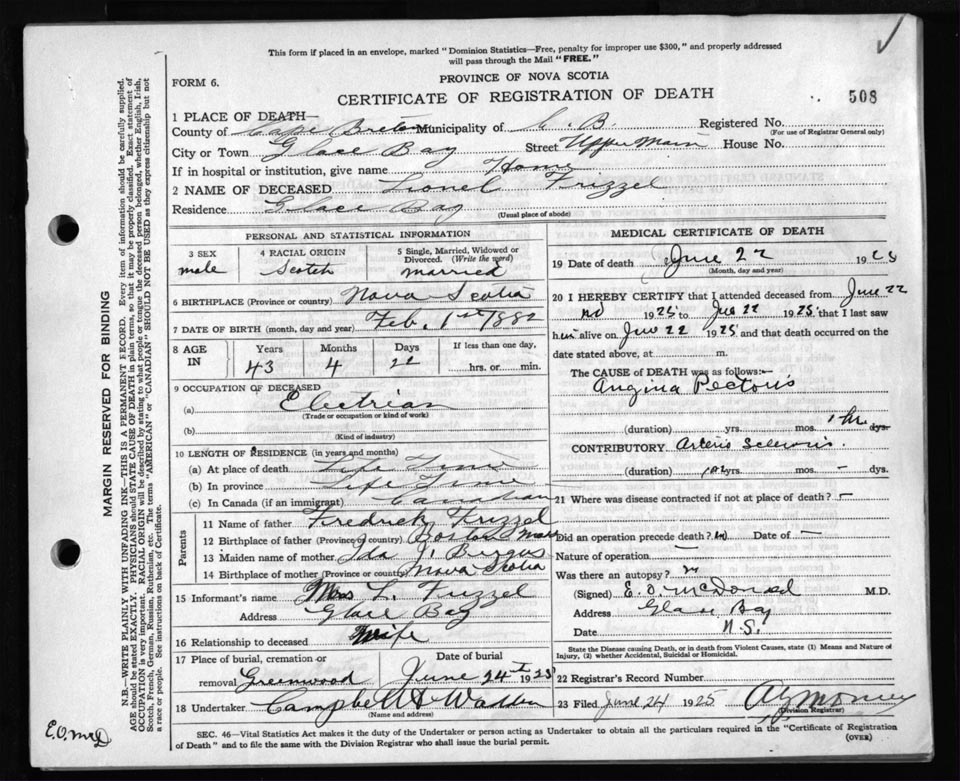 This form if placed in an envelope, marked "Dominion Statistics—Free, penalty for improper use $300," and properly addressed
will pass through the Mail "FREE."
PROVINCE OF NOVA SCOTIA
FORM 6.
CERTIFICATE OF REGISTRATION OF DEATH
508
1 PLACE OF DEATH—
County of Cape Breton Municipality of C. B. Registered No.
(For use of Registrar General only)
City or Town Glace Bay Street Upper Main House No.
If in hospital or institution, give name Home
2 NAME OF DECEASED Lionel Frizzel
Residence Glace Bay
(Usual place of abode)
PERSONAL AND STATISTICAL INFORMATION
3 SEX male
4 RACIAL ORIGIN Scotch
5 Single, Married, Widowed or Divorced. (Write the word) married
6 BIRTHPLACE (Province or country) Nova Scotia
7 DATE OF BIRTH (month, day and year) Feb. 1st 1882
8 AGE IN Years 43 Months 4 Days 22 If less than one day, hrs. or min.
9 OCCUPATION OF DECEASED
(a) Electrian
(Trade or occupation or kind of work)
(b)
(Kind of industry)
10 LENGTH OF RESIDENCE (in years and months)
(a) At place of death Life Time
(b) In province Life Time
(c) In Canada (if an immigrant) Canadian
Parents
11 Name of father Fredrick Frizzel
12 Birthplace of father (Province or country) Boston Mass
13 Maiden name of mother Ida J.
14 Birthplace of mother (Province or country) Nova Scotia
15 Informant's name Mrs L. Frizzel
Address Glace Bay
16 Relationship to deceased Wife
17 Place of burial, cremation or removal Greenwood
Date of burial June 24th 1925
18 Undertaker Campbell & Walker
(Name and address)
MEDICAL CERTIFICATE OF DEATH
19 Date of death June 22 1925
(Month, day and year)
20 I HEREBY CERTIFY that I attended deceased from June 22
1925 to June 22 1925 that I last saw
him alive on June 22 1925 and that death occurred on the
date stated above, at m.
The CAUSE of DEATH was as follows:—
Angina Pectoris
(duration) yrs. mos. 1 hr. dys.
CONTRIBUTORY Arterio Sclerosis.
(duration) yrs. mos. - dys.
21 Where was disease contracted if not at place of death? —
Did an operation precede death? no Date of —
Nature of operation —
Was there an autopsy? n
(Signed) E. O. McDonald M.D.
Address Glace Bay
Date N.S.
State the Disease causing Death, or in death from Violent Causes, state (1) Means and Nature of
Injury, (2) whether Accidental, Suicidal or Homicidal.
22 Registrar's Record Number
23 Filed June 24 1925
(Division Registrar)
SEC. 46—Vital Statistics Act makes it the duty of the Undertaker or person acting as Undertaker to obtain all the particulars required in the "Certificate of Registration
of Death" and to file the same with the Division Registrar who shall issue the burial permit.
(OVER)
MARGIN RESERVED FOR BINDING
N.B.—WRITE PLAINLY WITH UNFADING INK—THIS IS A PERMANENT RECORD. Every item of information should be carefully supplied.
AGE should be stated EXACTLY. PHYSICIANS should STATE CAUSE OF DEATH in plain terms, so that it may be properly classified. Exact statement of
OCCUPATION is very important. RACIAL ORIGIN will be described by stating to what people or tongue the deceased person belonged, whether English, Irish,
Scotch, French, German, Russian, Ruthenian, etc. The terms "AMERICAN" or "CANADIAN" SHOULD NOT BE USED as they express citizenship but not
a race or people. See instructions on back of Certificate.
E.O. McD